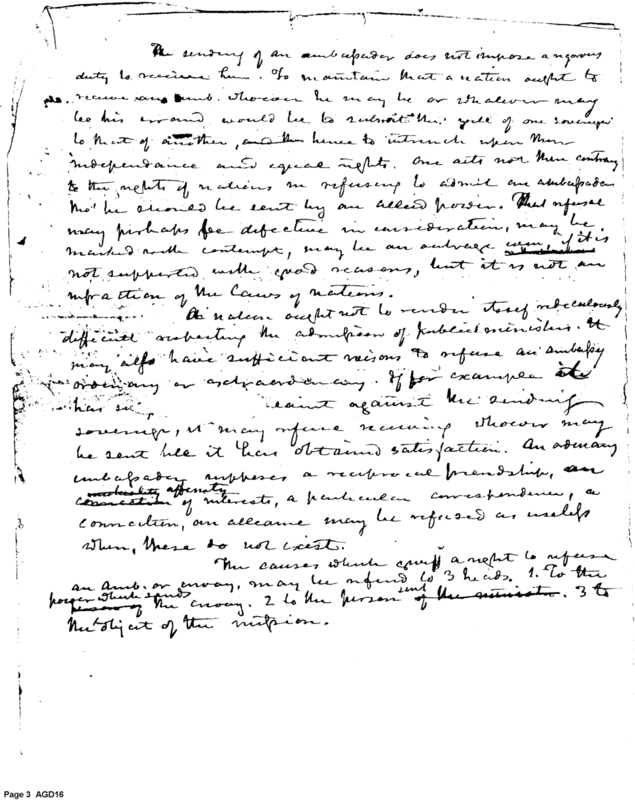 The sending of an ambassador does not impose a rigorous
duty to receive him. To maintain that a nation ought to
receive an amb. whoever he may be or whatever may
be his errand would be to submit the will of one sovereign
to that of another, and hence to intrench upon their
independance and equal rights. One acts not then contrary
to the rights of nations in refusing to admit an ambassador
tho' he should be sent by an allied power. That refusal
may perhaps be defective in consideration, may be
marked with contempt, may be an outrage even, if it is
not supported with good reasons, but it is not an
infraction of the Laws of nations.
A nation ought not to render itself rediculously
difficult respecting the admission of public ministers. It
may also have sufficient reasons to refuse an embassy
ordinary or extraordinary. If for example it
has su laint against the sending
sovereign, it may refuse receiving whoever may
be sent till it has obtained satisfaction. An ordinary
embassador supposes a reciprocal friendship, an
affinity
connection of interests, a particular correspondence, a
connection, an alleance may be refused as useless
when, these do not exist.
The causes which give a right to refuse
an amb. or envoy, may be refered to 3 heads. 1. To the
power which sends
person of the envoy. 2 to the person sent of the minister. 3 to
the object of the mission.
Page 3 AGD16